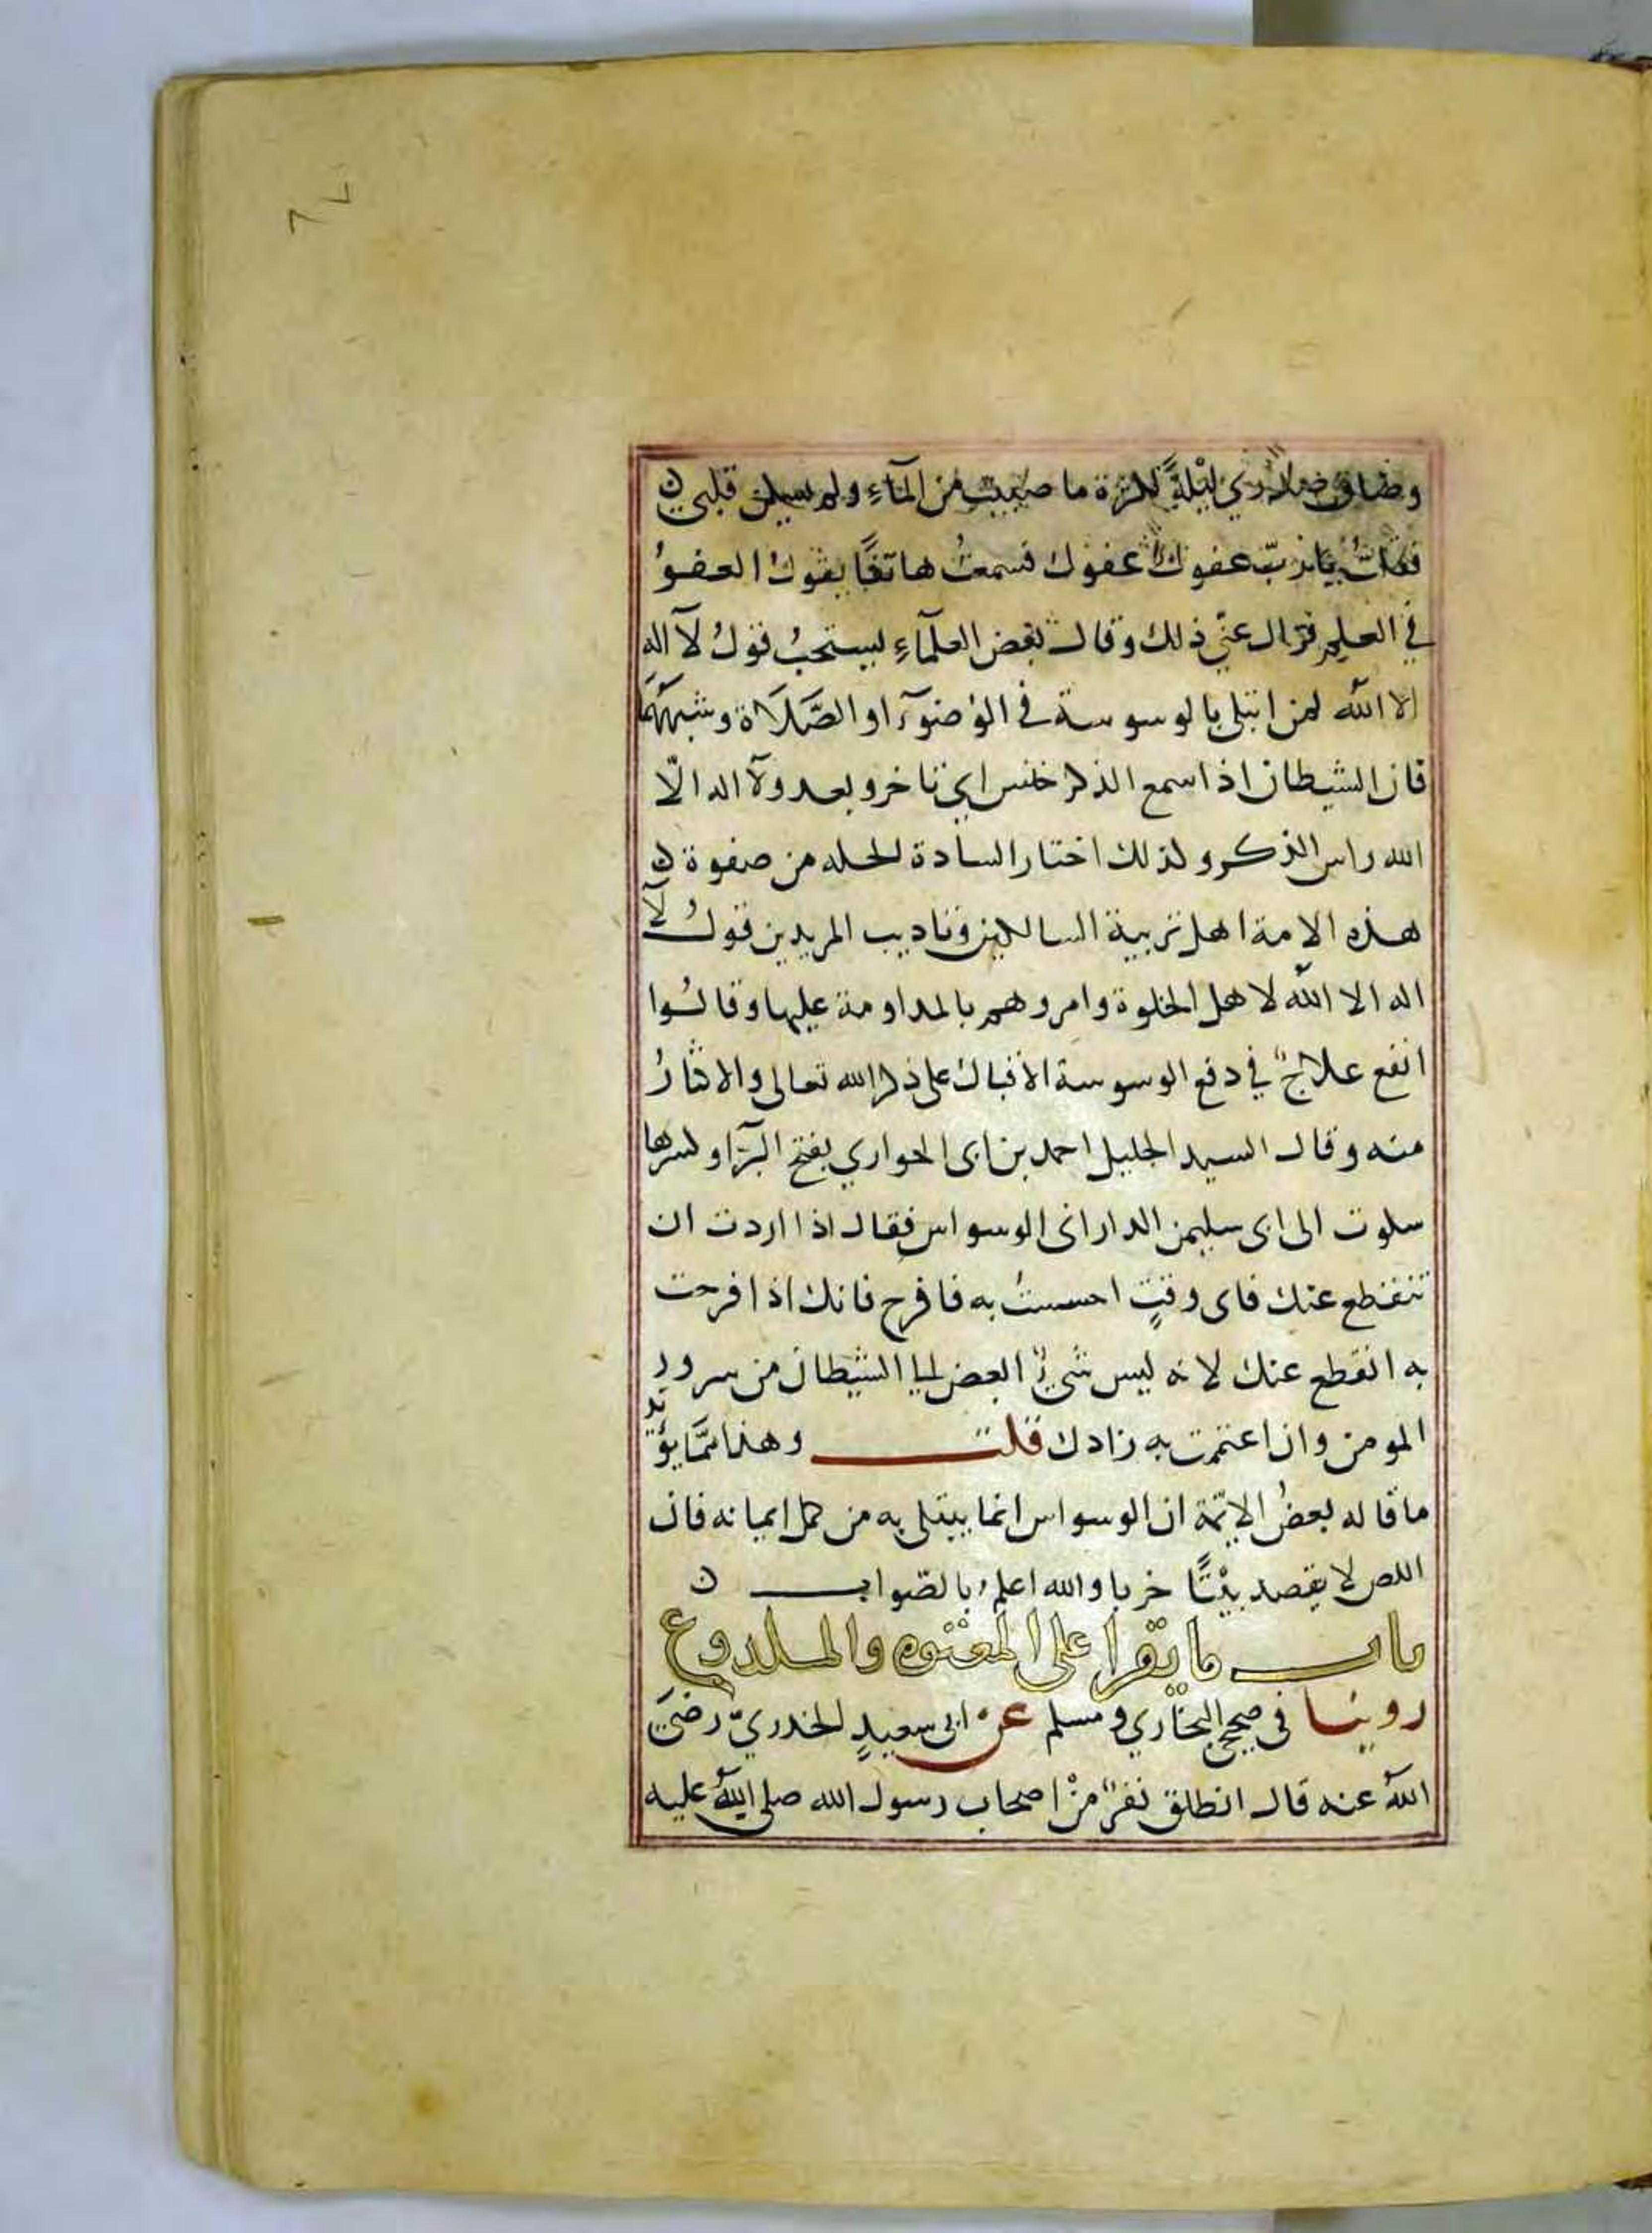 ٨٧
وضاق صدري ليلةً لكثرة ما صببت من المآءِ ولم يسكن قلبي ن
فقلتُ يا ربّ عفوك عفوك فسمعتُ هاتفًا يقول العفوُ
في العلم فزال عنّي ذلك وقال بعض العلمآءِ يستحبُ قولُ لآ اله
الا الله لمن ابتلى بالوسوسة في الوضوءَ او الصَّلَاة وشبههمَا
فان الشيطان اذا سمع الذكر خنس اي تاخر وبعد ولآ اله الّا
الله راس الذكر ولذلك اختار السادة الجله من صفوة ن
هذه الامة اهل تربية السالكين وتاديب المريدين قولُ لآ
اله الا الله لاهل الخلوة وامروهم بالمداومة عليها وقالُوا
انفع علاجٍ في دفع الوسوسة الاقبال على ذكر الله تعالى والاكثارُ
منه وقال السيد الجليل احمد بن ابى الحواري بفتح الرّآ وكسرها
شكوت الى ابى سليمن الدارانى الوسواس فقال اذا اردت ان
تنقطع عنك فاى وقتٍ احسستُ به فافرح فانك اذا فرحت
به انقطع عنك لانه ليس شيءٌ ابغض الى الشيطان من سرور
المومن وان اغتممت به زادك قلت وهذا ممَّا يؤيد
ما قاله بعضُ الايمّة ان الوسواس انما يبتلى به من كمل ايمانه فان
اللص لا يقصد بيْتًا خربا والله اعلم بالصّواب ن
باب ما يقرا على المعتوه والملدوغ
روينا في صحيح البخاري ومسلم عن ابى سعيدٍ الخدريّ رضيَ
اللهُ عنه قال انطلق نفرٌ منْ اصحاب رسول الله صلى اللهُ عليه